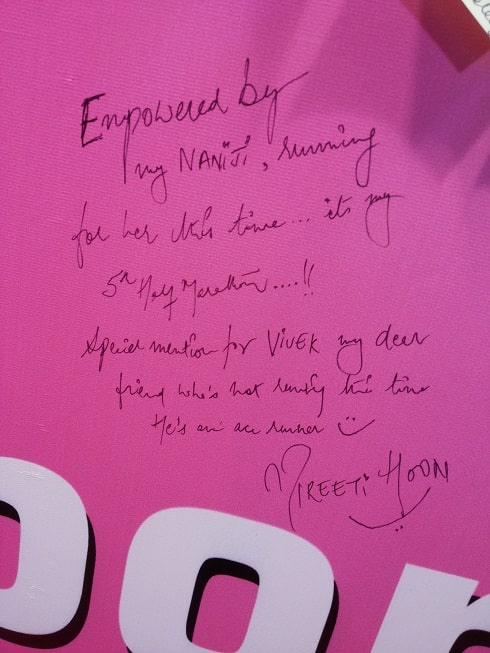 Empowered by
my NANiJi, running
for her this time... its my
5th Half Marathon....!!
Special mention for VIVEK my dear
friend who's not running this time
He's an ace runner
PREETI HOON
oon